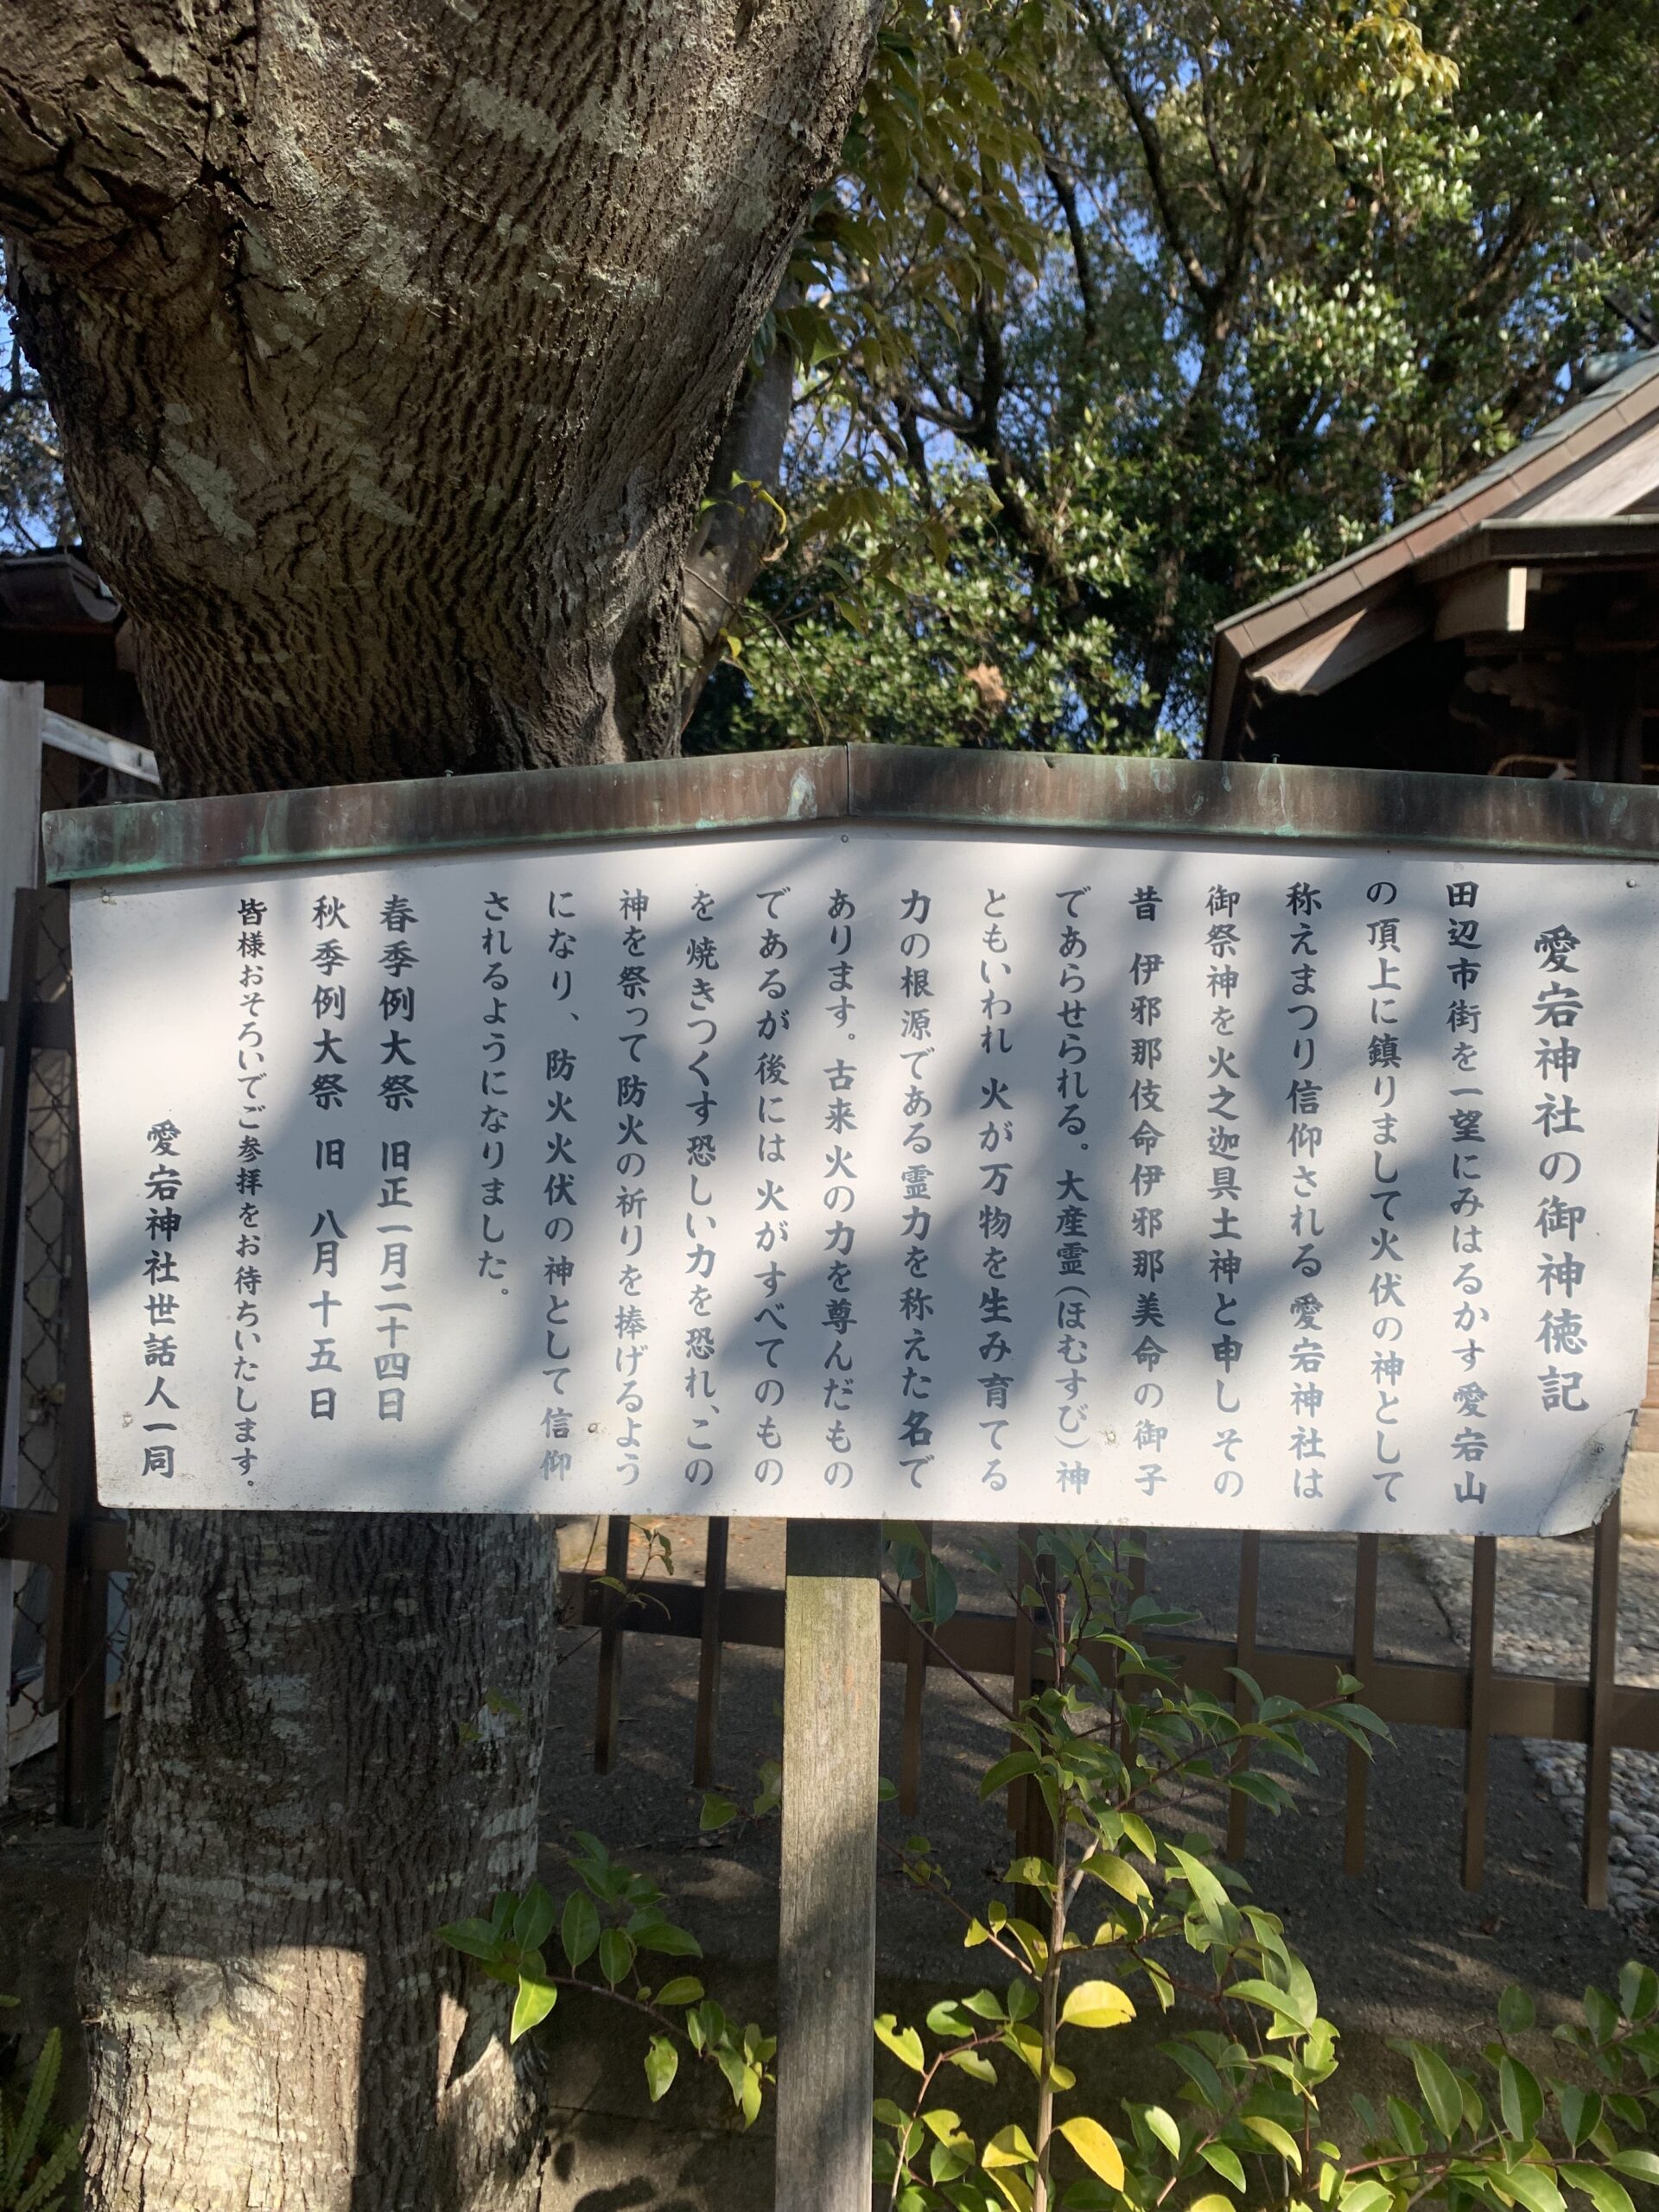 愛宕神社の御神徳記
田辺市街を一望にみはるかす愛宕山
の頂上に鎮りまして火伏の神として
称えまつり信仰される愛宕神社は
御祭神を火之迦具土神と申しその
昔 伊邪那伎命伊邪那美命の御子
であらせられる。大産霊(ほむすび)神
ともいわれ 火が万物を生み育てる
力の根源である霊力を称えた名で
あります。古来火の力を尊んだもの
であるが後には火がすべてのもの
を焼きつくす恐しい力を恐れ、この
神を祭って防火の祈りを捧げるよう
になり、防火火伏の神として信仰
されるようになりました。
春季例大祭 旧正一月二十四日
秋季例大祭 旧 八月十五日
皆様おそろいでご参拝をお待ちいたします。
愛宕神社世話人一同